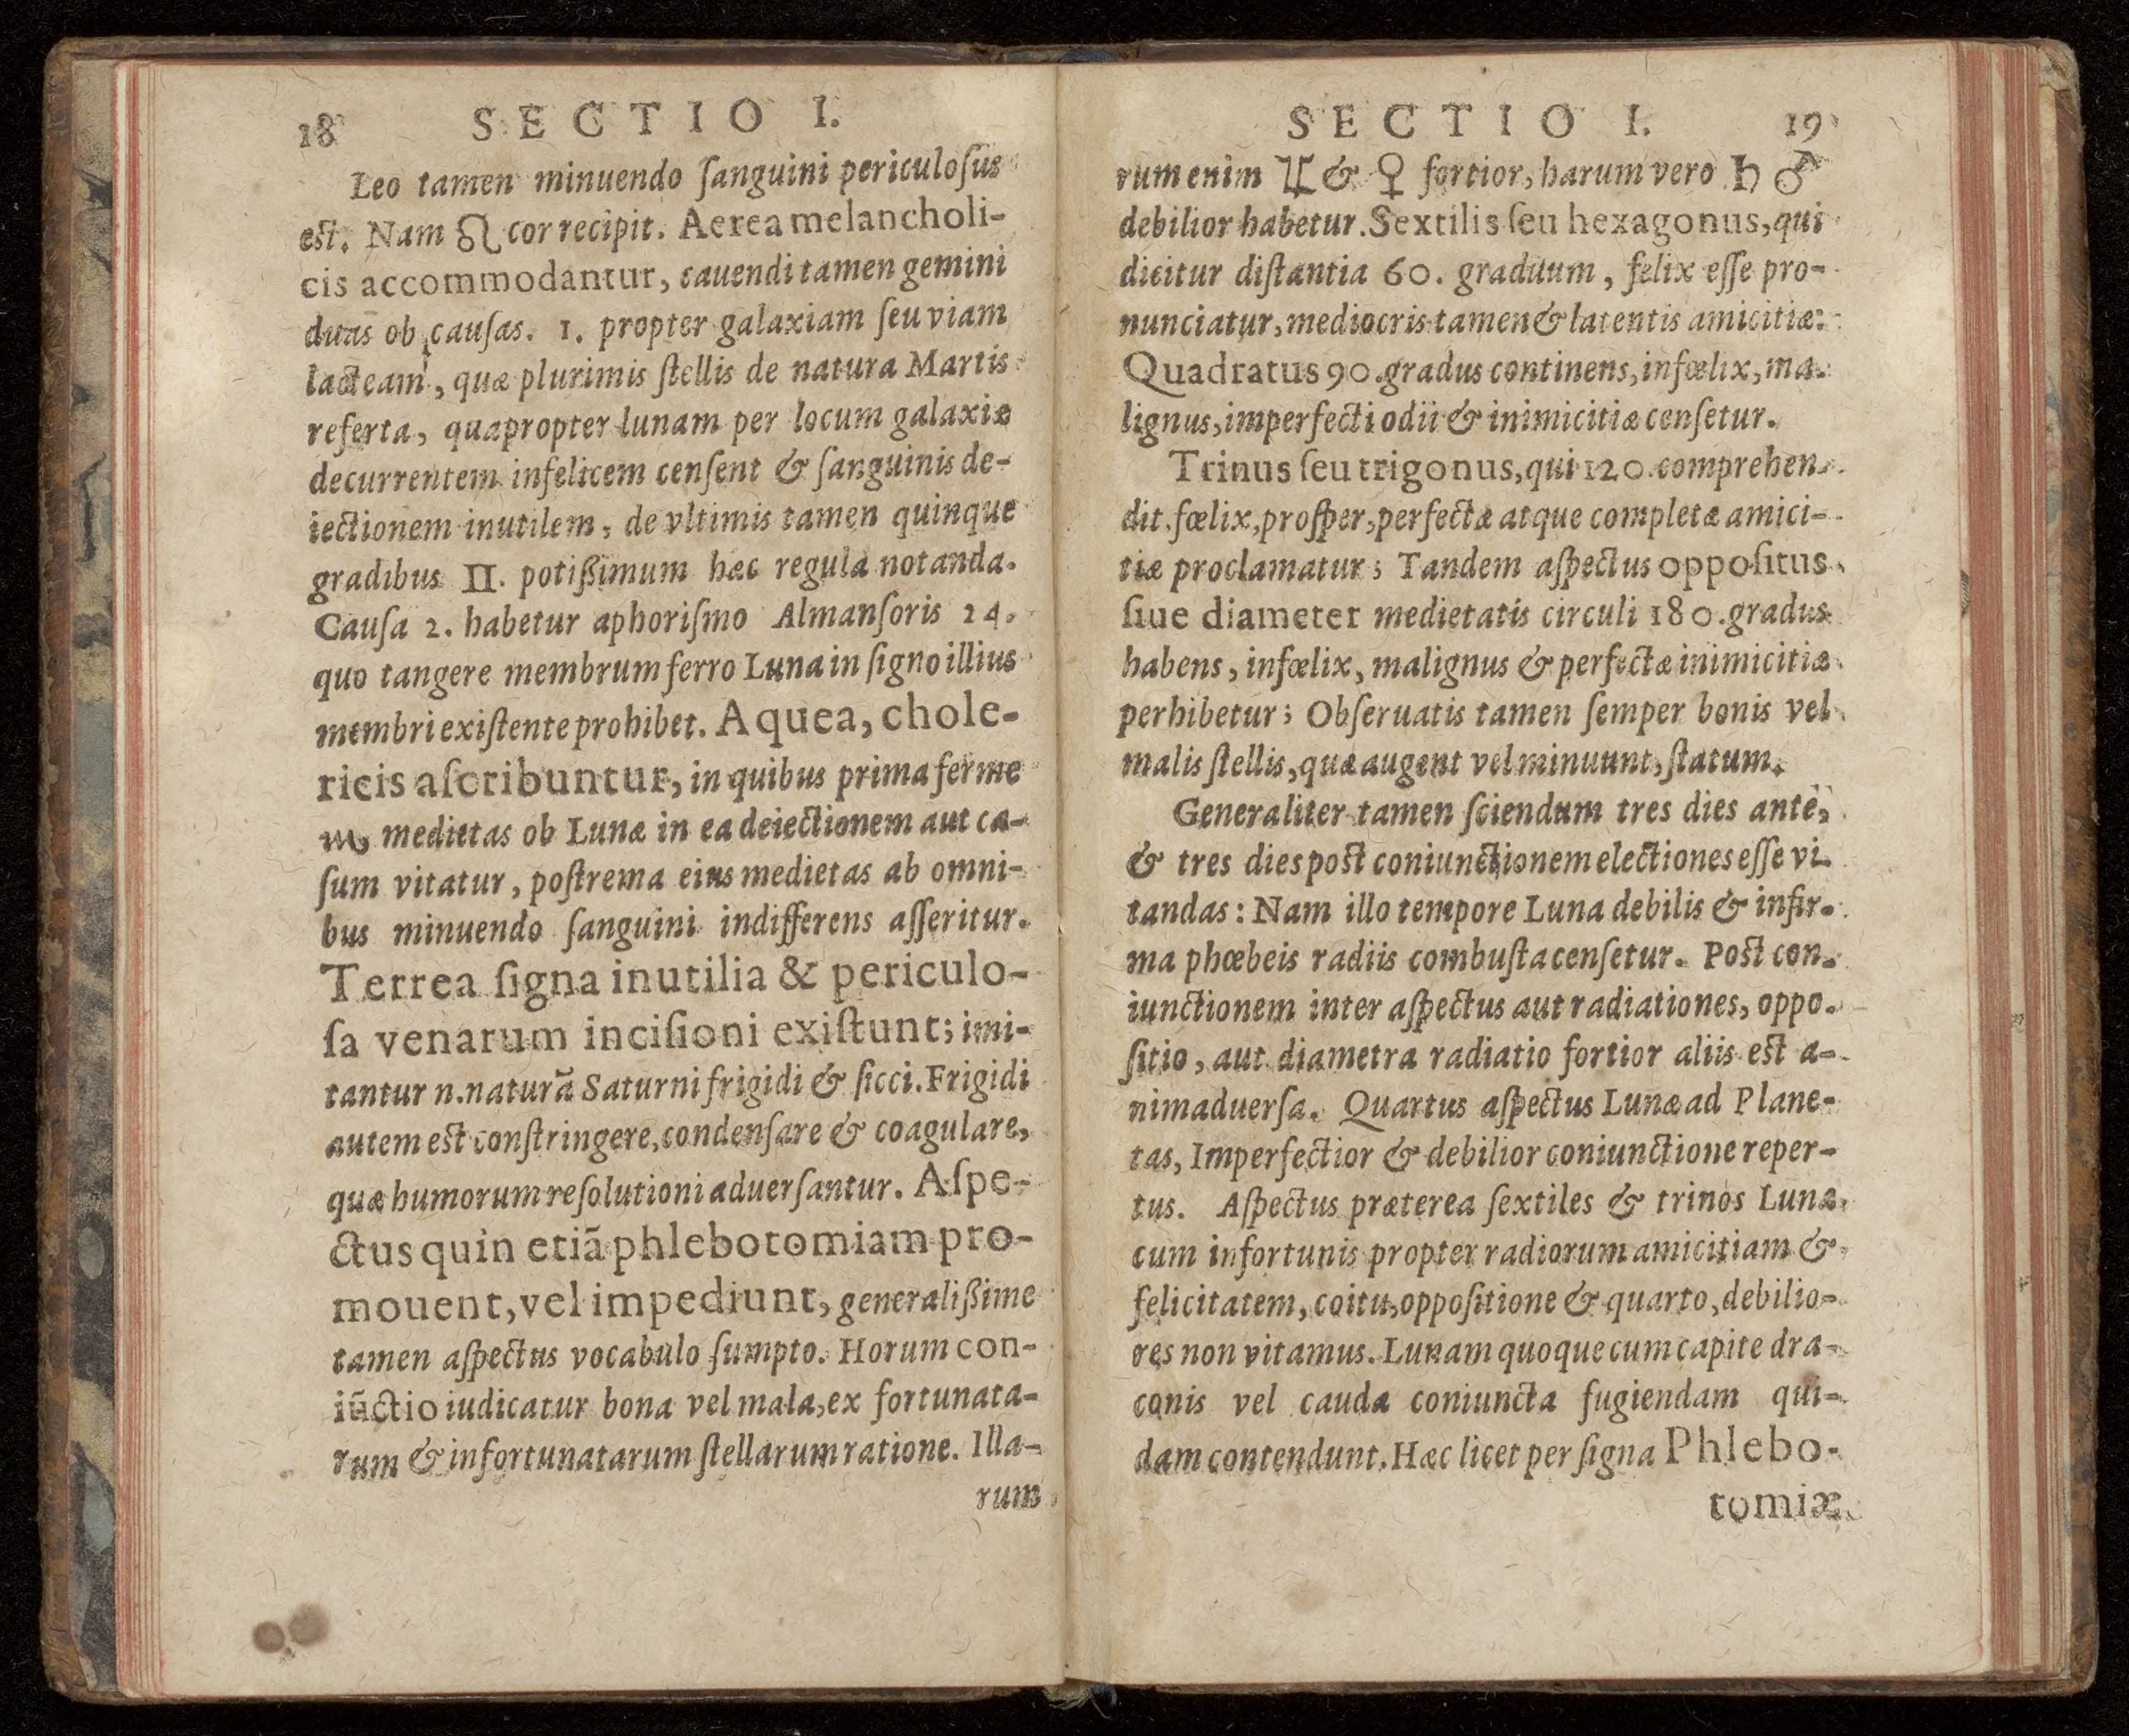 18 SECTIO I.
Leo tamen minuendo ſanguini periculoſus
est. Nam ♌ cor recipit. Aerea melancholi-
cis accommodantur, cauendi tamen gemini
duas ob cauſas. 1. propter galaxiam ſeu viam
lacteam, quæ plurimis ſtellis de natura Martis
referta, quapropter lunam per locum galaxiæ
decurrentem infelicem cenſent & ſanguinis de-
iectionem inutilem, de vltimis tamen quinque
gradibus II. potißimum hæc regula notanda.
Cauſa 2. habetur aphoriſmo Almanſoris 24.
quo tangere membrum ferro Luna in ſigno illius
membri exiſtente prohibet. Aquea, chole-
ricis aſcribuntur, in quibus prima ferme
♏ medietas ob Lunæ in ea deiectionem aut ca-
ſum vitatur, poſtrema eius medietas ab omni-
bus minuendo ſanguini indifferens aſſeritur.
Terrea ſigna inutilia & periculo-
ſa venarum inciſioni exiſtunt; imi-
tantur n. naturã Saturni frigidi & ſicci. Frigidi
autem est conſtringere, condenſare & coagulare,
quæ humorum reſolutioni aduerſantur. Aſpe-
ctus quin etiã phlebotomiam pro-
mouent, vel impediunt, generalißime
tamen aſpectus vocabulo ſumpto. Horum con-
iũctio iudicatur bona vel mala, ex fortunata-
rum & infortunatarum ſtellarum ratione. Illa-
rum
SECTIO I. 19
rum enim ♃ & ♀ fortior, harum vero ♄ ♂
debilior habetur. Sextilis ſeu hexagonus, qui
dicitur diſtantia 60. graduum, felix eſſe pro-
nunciatur, mediocris tamen & latentis amicitiæ:
Quadratus 90. gradus continens, infœlix, ma-
lignus, imperfecti odii & inimicitiæ cenſetur.
Trinus ſeu trigonus, qui 120. comprehen-
dit. fœlix, proſper, perfectæ atque completæ amici-
tiæ proclamatur; Tandem aſpectus oppoſitus
ſiue diameter medietatis circuli 180. gradus
habens, infœlix, malignus & perfectæ inimicitiæ
perhibetur; Obſeruatis tamen ſemper bonis vel
malis ſtellis, quæ augent vel minuunt, ſtatum.
Generaliter tamen ſciendum tres dies ante,
& tres dies post coniunctionem electiones eſſe vi-
tandas: Nam illo tempore Luna debilis & infir-
ma phœbeis radiis combuſta cenſetur. Post con-
iunctionem inter aſpectus aut radiationes, oppo-
ſitio, aut diametra radiatio fortior aliis est a-
nimaduerſa. Quartus aſpectus Lunæ ad Plane-
tas, Imperfectior & debilior coniunctione reper-
tus. Aſpectus præterea ſextiles & trinos Lunæ
cum infortunis propter radiorum amicitiam &
felicitatem, coitu, oppoſitione & quarto, debilio-
res non vitamus. Lunam quoque cum capite dra-
conis vel cauda coniuncta fugiendam qui-
dam contendunt. Hæc licet per ſigna Phlebo-
tomiæ